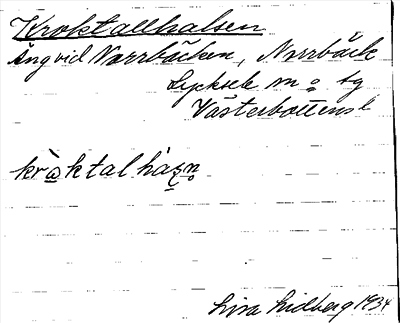 Kroktallhalsen
Äng vid Norrbäcken, Norrbäck
Lycksele sn o tg
Västerbottens l
kròktalhàlsn
Lisa Lidberg 1934